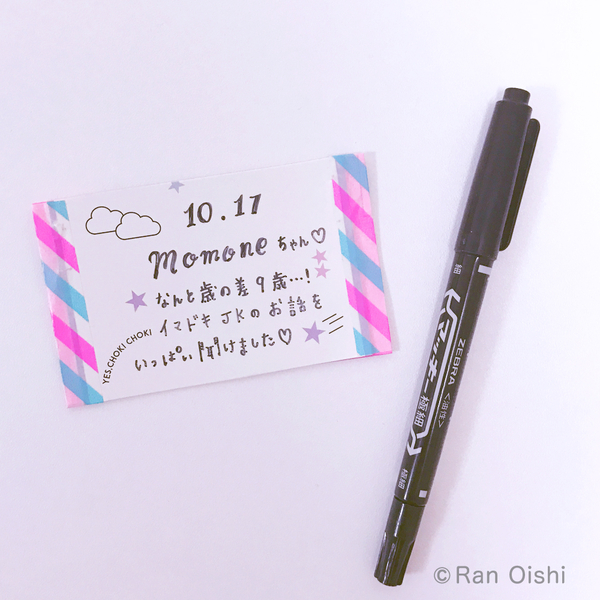 10.17
Momoneちゃん♡
なんと歳の差9歳…!
イマドキJKのお話を
いっぱい聞けました♡
YES,CHOKI CHOKI
細
マッキー極細
ZEBRA <油性>
極細
©Ran Oishi